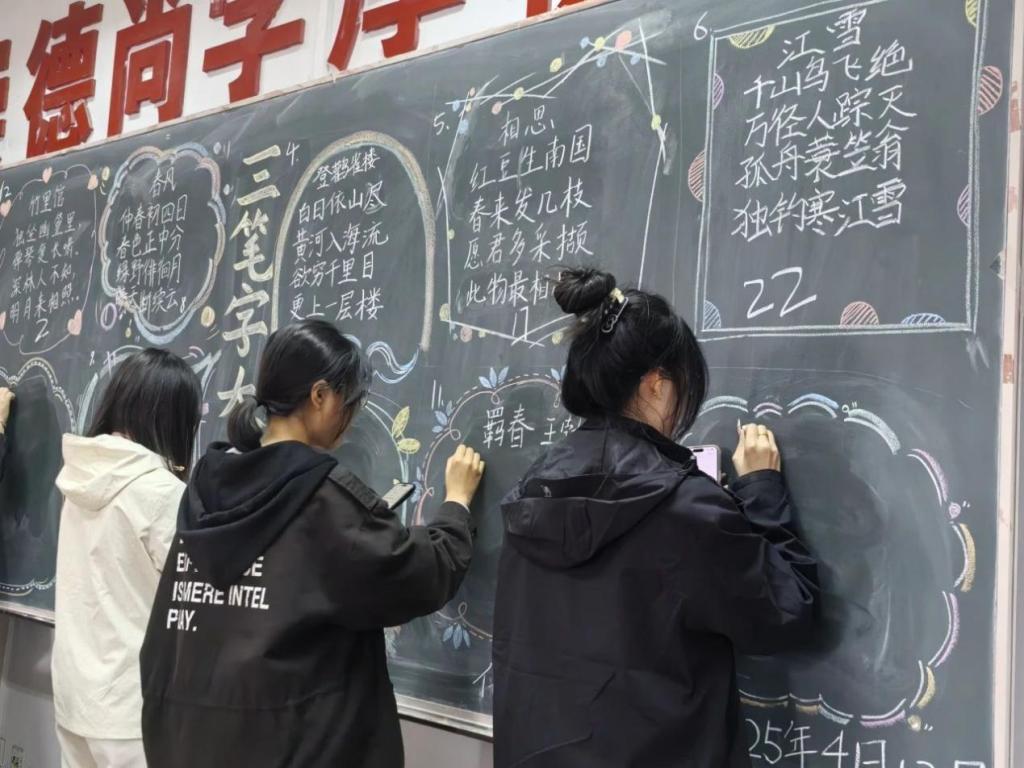 德尚学
竹里馆
独坐幽篁里
弹琴复长啸
深林人不知
明月来相照
2
春风
仲春初四日
春色正中分
绿野徘徊月
断续云
8
三笔字大
4.
登鹳雀楼
白日依山尽
黄河入海流
欲穷千里目
更上一层楼
5.
相思
红豆生南国
春来发几枝
愿君多采撷
此物最相
17
6
江雪
千山鸟飞绝
万径人踪灭
孤舟蓑笠翁
独钓寒江雪
22
8.
11.
羁春 王
ISMERE INTEL
25年4月